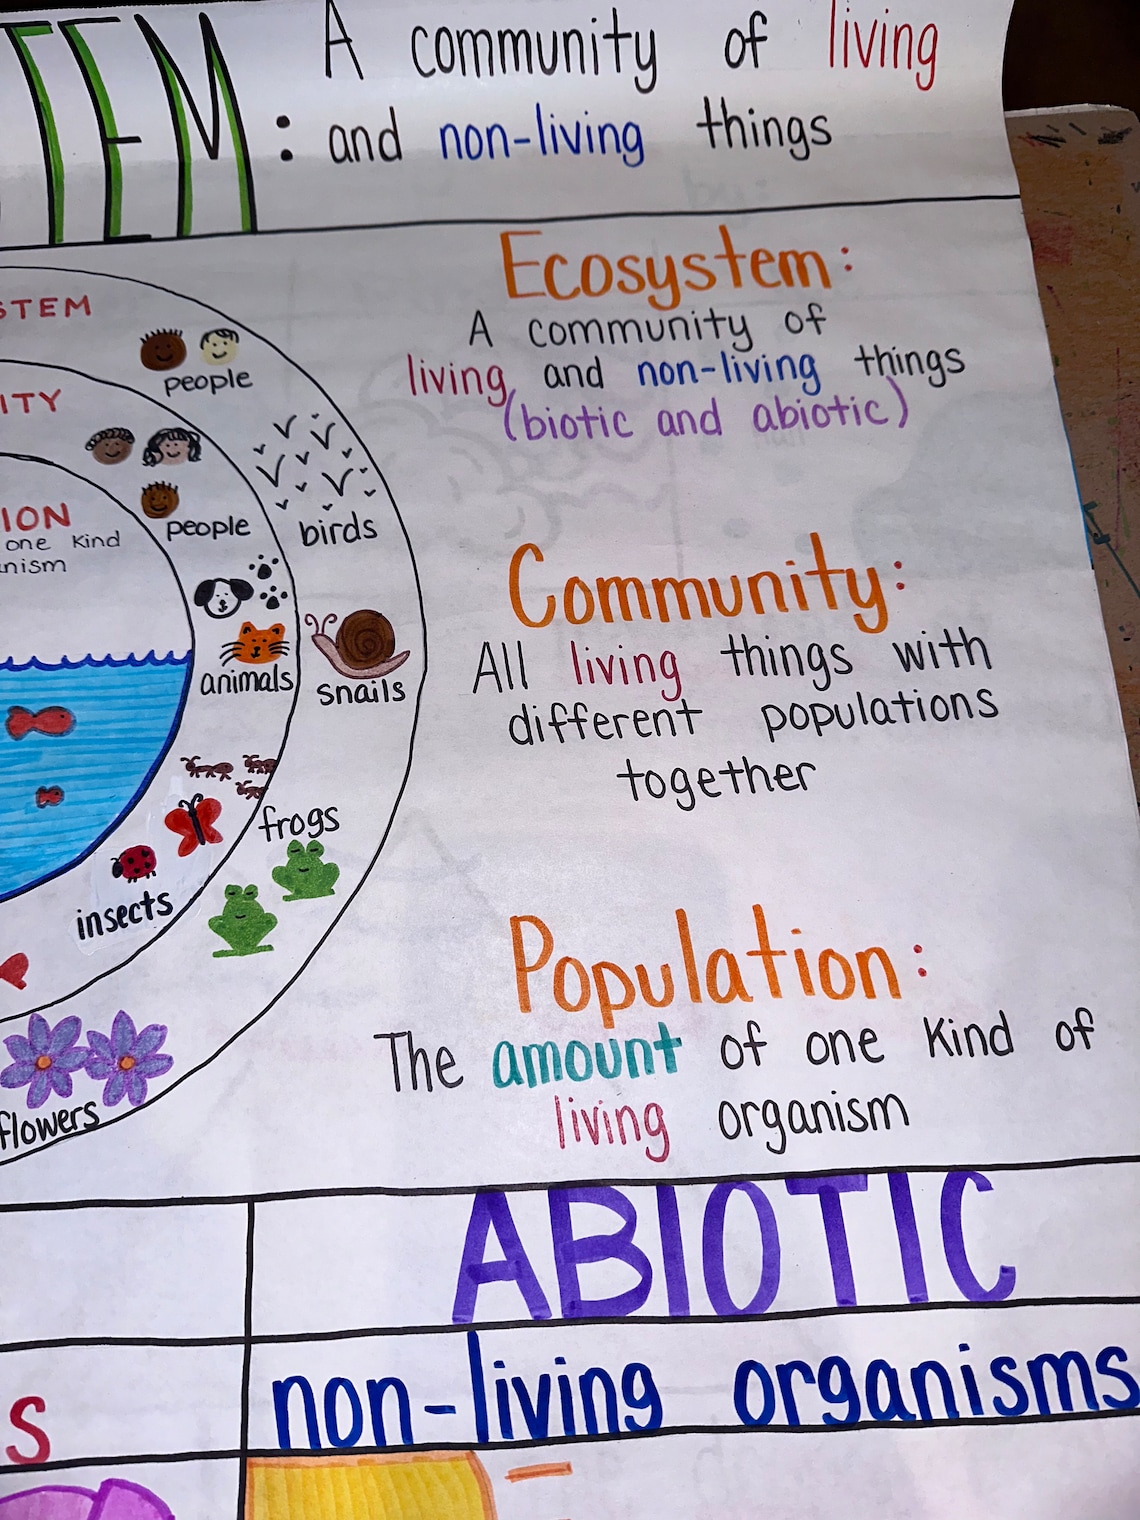 TEM: A community of living
and non-living things
STEM
people
ITY
people
birds
ION
one Kind
nism
animals
snails
frogs
insects
flowers
Ecosystem:
A community of
living and non-living things
(biotic and abiotic)
Community:
All living things with
different populations
together
Population:
The amount of one Kind of
living organism
ABIOTIC
s
non-living organisms